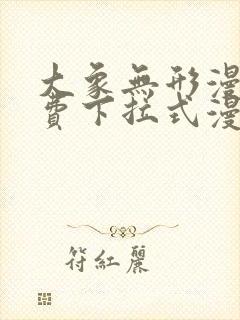 大象無形漫
費下拉式漫
符紅麗